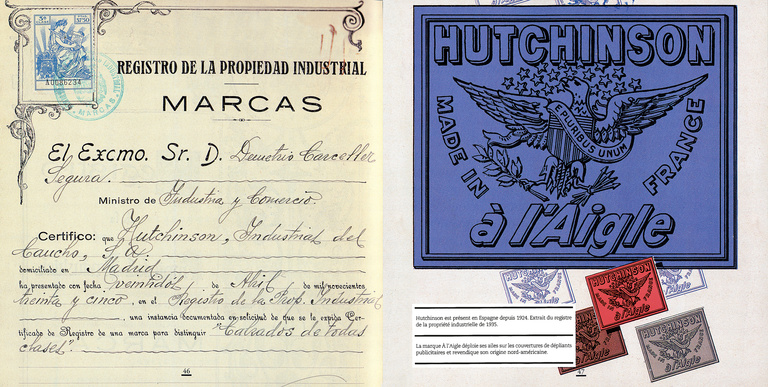 3'50
A0086234
MARCAS
REGISTRO DE LA PROPIEDAD INDUSTRIAL
MARCAS
El Excmo. Sr. D. Demetrio Carceller
Segura.
Ministro de Industria y Comercio.
Certifico: que Hutchinson, Industrial del
Caucho, S.A.
domiciliado en Madrid
ha presentado con fecha veintidós de Abril de mil novecientos
treinta y cinco, en el Registro de la Prop. Industrial
una instancia documentada en solicitud de que se le expida Cer-
tificado de Registro de una marca para distinguir "Calzados de todas
clases".
46
HUTCHINSON
E PLURIBUS UNUM
MADE IN
FRANCE
à l'Aigle
HUTCHINSON
à l'Aigle
Hutchinson est présent en Espagne depuis 1924. Extrait du registre
de la propriété industrielle de 1935.
La marque À l'Aigle déploie ses ailes sur les couvertures de dépliants
publicitaires et revendique son origine nord-américaine.
47